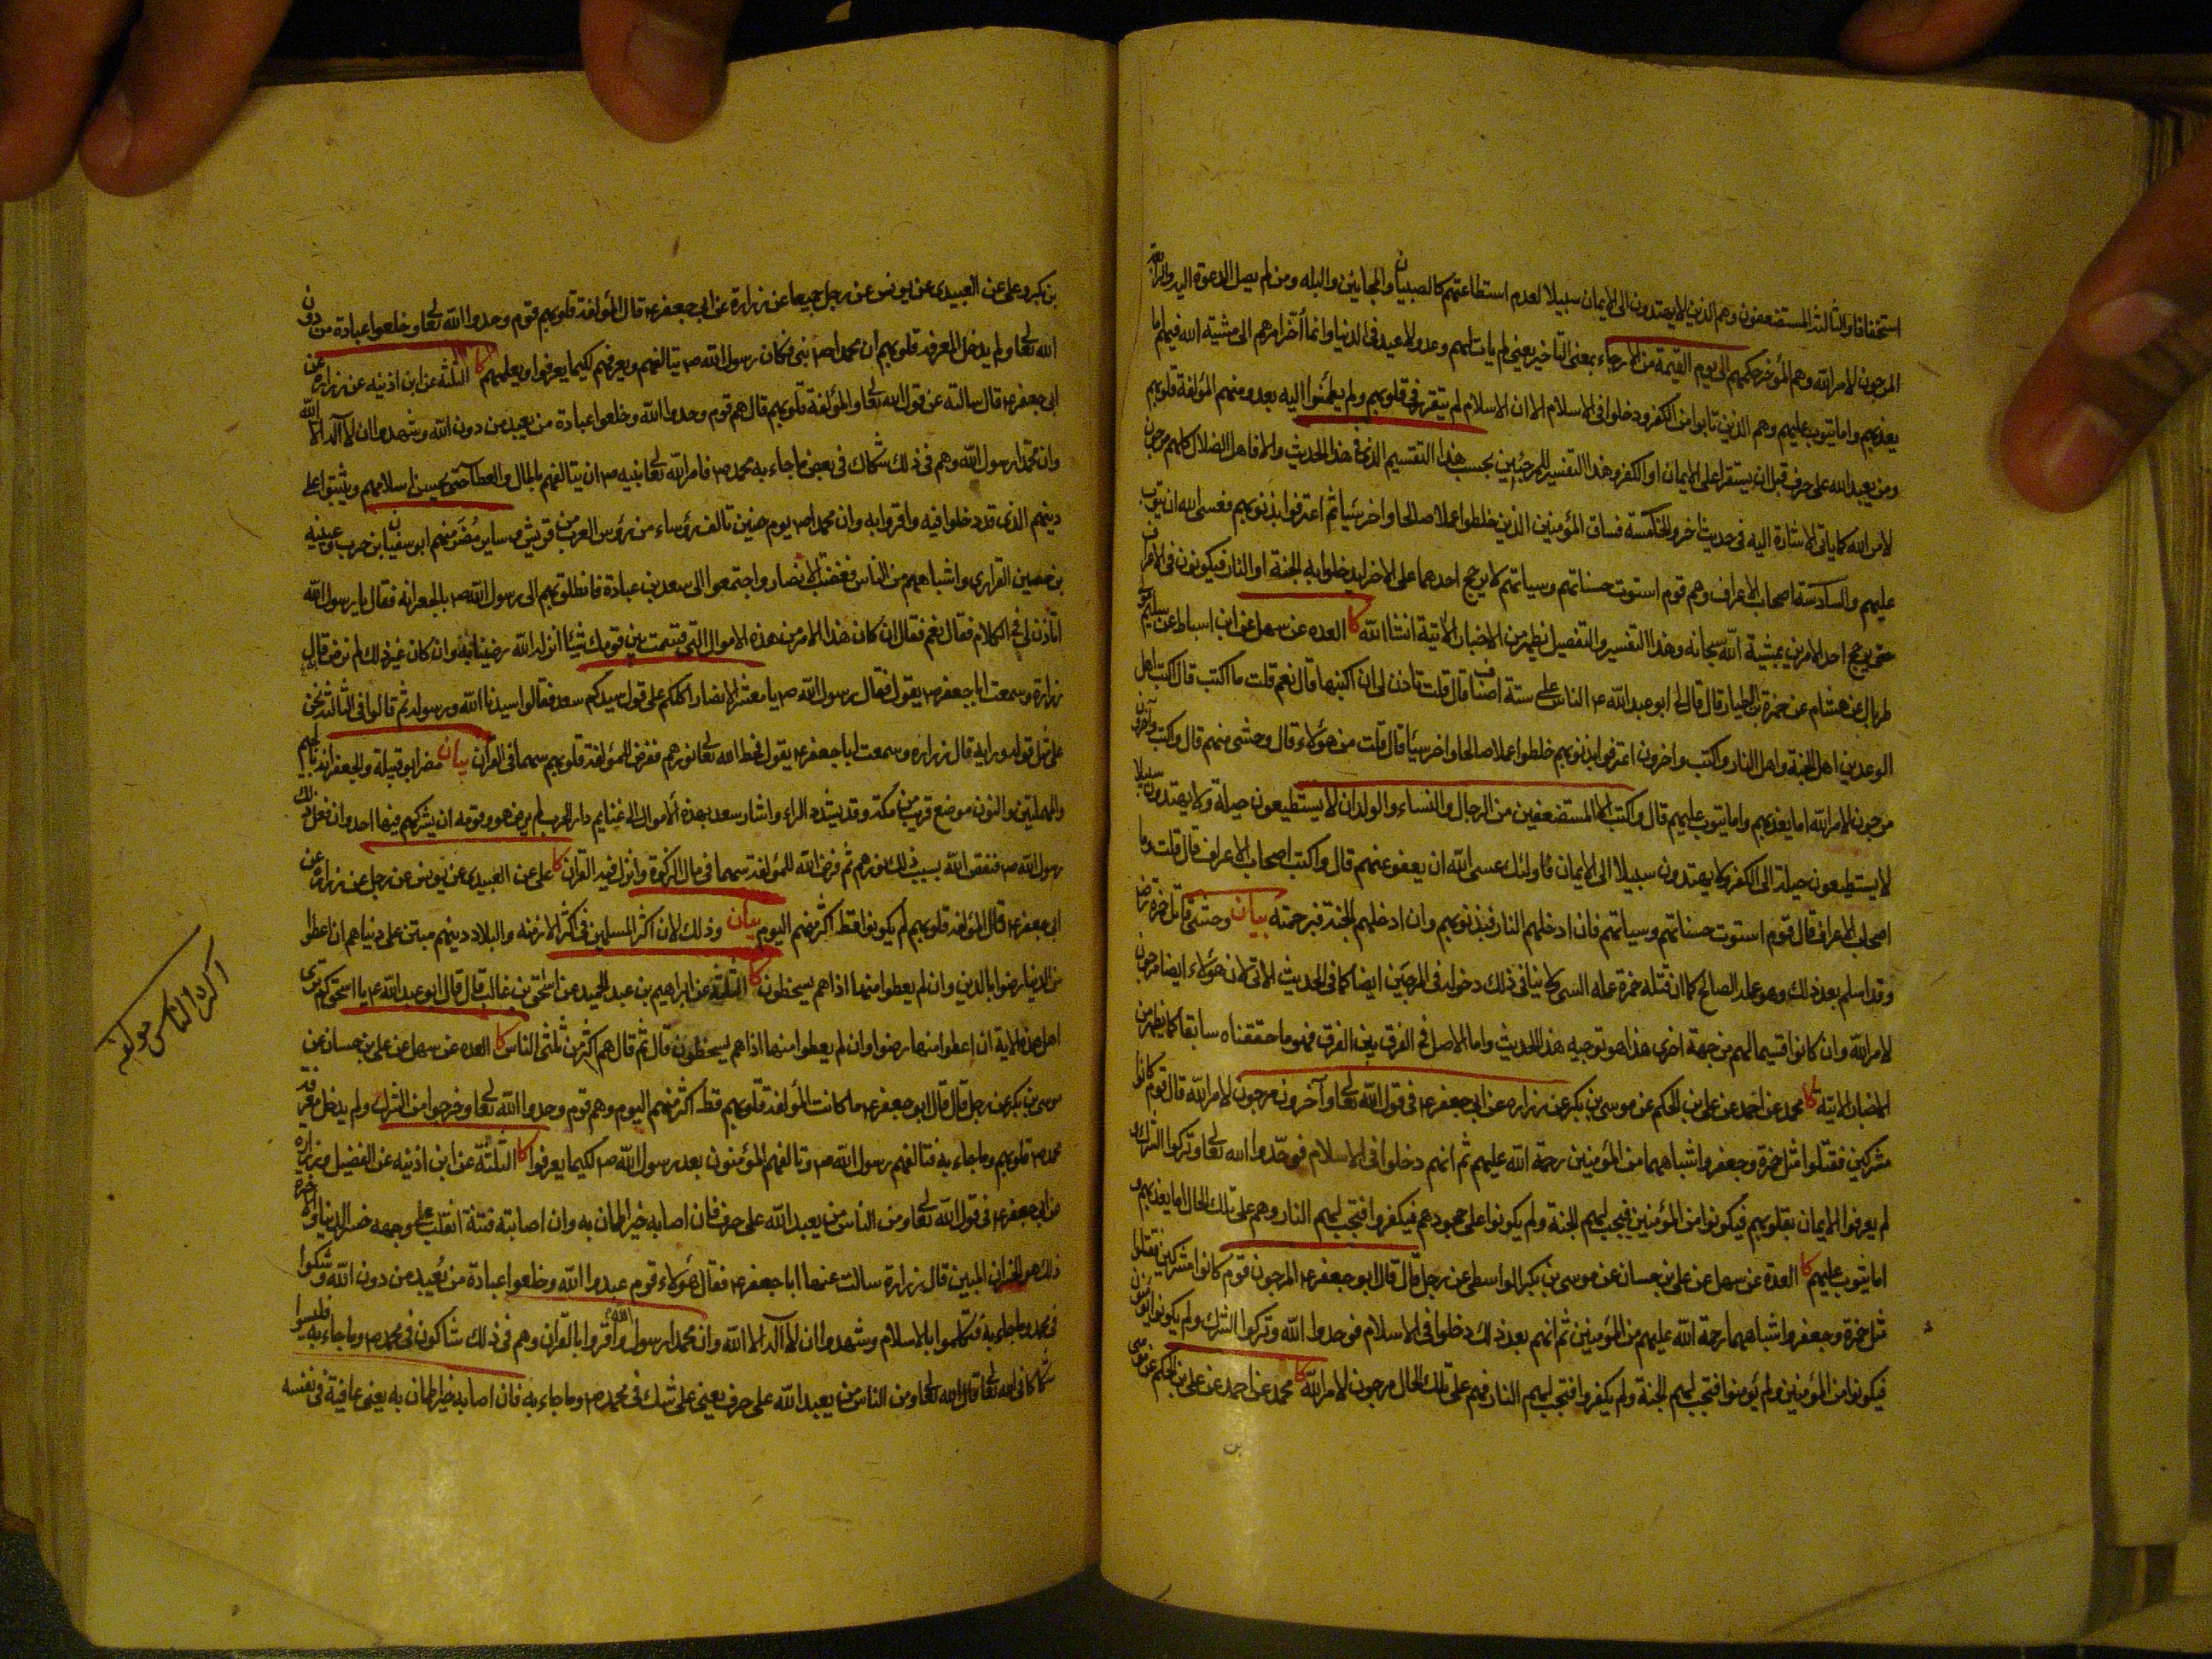 استخفافا والثالثة المستضعفون وهم الذين لا يهتدون الى الايمان سبيلا لعدم استطاعتهم كالصبيان والمجانين والبله ومن لم يصل الدعوة اليه والرابعة
المرجون لامر الله وهم المؤخر حكمهم الى يوم القيمة من الارجاء بمعنى التاخير يعنى لم يات لهم وعد ولا وعيد فى الدنيا وانما أخر امرهم الى مشية الله فيهم اما
يعذبهم واما يتوب عليهم وهم الذين تابوا من الكفر ودخلوا فى الاسلام الا ان الاسلام لم يتقرر فى قلوبهم ولم يطمئنوا اليه بعد ومنهم المؤلفة قلوبهم
ومن يعبد الله على حرف قبل ان يستقرا على الايمان او الكفر وهذا التفسير للمرجئين بحسب هذا التقسيم الذى فى هذا الحديث والا فاهل الضلال كلهم مرجون
لامر الله كما ياتى الاشارة اليه فى حديث اخر والخامسة فساق المؤمنين الذين خلطوا عملا صالحا واخر سيئا ثم اعترفوا بذنوبهم فعسى الله ان يتوب
عليهم والسادسة اصحاب الاعراف وهم قوم استوت حسناتهم وسيئاتهم لا يرجح احدهما على الاخر ليدخلوا به الجنة او النار فيكونون فى الاعراف
حتى يرجح احد الامرين بمشية الله سبحانه وهذا التفسير والتفصيل يظهر من الاخبار الاتية انشاء الله كا العده عن سهل عن ابن اسباط عن سليم مولى
طربال عن هشام عن حمزة بن الطيار قال قال لى ابو عبد الله ع الناس على ستة اصناف قال قلت تاذن لى ان اكتبها قال نعم قلت ما اكتب قال اكتب اهل
الوعدين اهل الجنة واهل النار واكتب واخرون اعترفوا بذنوبهم خلطوا عملا صالحا واخر سيئا قال قلت من هؤلاء قال وحشى منهم قال واكتب واخرون
مرجون لامر الله اما يعذبهم واما يتوب عليهم قال واكتب الا المستضعفين من الرجال والنساء والولدان لا يستطيعون حيلة ولا يهتدون سبيلا
لا يستطيعون حيلة الى الكفر ولا يهتدون سبيلا الى الايمان فاولئك عسى الله ان يعفو عنهم قال واكتب اصحاب الاعراف قال قلت وما
اصحاب الاعراف قال قوم استوت حسناتهم وسيئاتهم فان ادخلهم النار فبذنوبهم وان ادخلهم الجنة فبرحمته بيان وحشى قاتل حمزة رضا
وقد اسلم بعد ذلك وهو عمله الصالح كما ان قتله حمزة عمله السيئ ولا ينافى ذلك دخوله فى المرجين ايضا كما فى الحديث الاتى لان هؤلاء ايضا مرجون
لامر الله وان كانوا قسيما لهم من جهة اخرى هذا هو توجيه هذا الحديث واما الاصل فى الفرق بين الفرق فهو ما حققناه سابقا كما يظهر من
الاخبار الاتية كا محمد عن احمد عن على بن الحكم عن موسى بن بكر عن زراره عن ابى جعفر ع فى قول الله تعالى وآخرون مرجون لامر الله قال قوم كانوا
مشركين فقتلوا مثل حمزة وجعفر واشباههما من المؤمنين رحمة الله عليهم ثم انهم دخلوا فى الاسلام فوحدوا الله تعالى وتركوا الشرك و
لم يعرفوا الايمان بقلوبهم فيكونوا من المؤمنين فيجب لهم الجنة ولم يكونوا على جحودهم فيكفروا فتجب لهم النار وهم على تلك الحال اما يعذبهم و
اما يتوب عليهم كا العدة عن سهل عن على بن حسان عن موسى بن بكر الواسطى عن رجل قال قال ابو جعفر ع المرجون قوم كانوا مشركين فقتلوا
مثل حمزة وجعفر واشباههما رحمة الله عليهم من المؤمنين ثم انهم بعد ذلك دخلوا فى الاسلام فوحدوا الله وتركوا الشرك ولم يكونوا يؤمنون
فيكونوا من المؤمنين ولم يؤمنوا فتجب لهم الجنة ولم يكفروا فتجب لهم النار فهم على تلك الحال مرجون لامر الله كا محمد عن احمد عن على بن الحكم عن موسى
بن
بن بكر وعلى عن العبيدى عن يونس عن رجل جميعا عن زرارة عن ابى جعفر ع قال المؤلفة قلوبهم قوم وحدوا الله تعالى وخلعوا عبادة من دون
الله تعالى ولم يدخل المعرفة قلوبهم ان محمدا ص نبى فكان رسول الله ص يتالفهم ويعرفهم لكيما يعرفوا ويعلمهم كا الثلثة عن ابن اذينه عن زراره عن
ابى جعفر ع قال سالته عن قول الله تعالى والمؤلفة قلوبهم قال هم قوم وحدوا الله وخلعوا عبادة من يعبد من دون الله وشهدوا ان لا اله الا الله
وان محمدا رسول الله وهم فى ذلك شكاك فى بعض ما جاء به محمد ص فامر الله تعالى نبيه ص ان يتالفهم بالمال والعطا حتى يحسن اسلامهم ويثبتوا على
دينهم الذى قد دخلوا فيه واقروا به وان محمدا ص يوم حنين تالف رؤساء من رؤس العرب من قريش وساير مضر منهم ابو سفيان بن حرب وعيينه
بن حصين الفزارى واشباههم من الناس فغضبت الانصار واجتمعوا الى سعد بن عبادة فانطلق بهم الى رسول الله ص بالجعرانه فقال يا رسول الله
اتاذن لى فى الكلام فقال نعم فقال ان كان هذا الامر من هذه الاموال التى قسمت بين قومك شيئا انزله الله رضينا به وان كان غير ذلك لم نرض قال
زراره وسمعت ابا جعفر ع يقول فقال رسول الله ص يا معشر الانصار اكلكم على قول سيدكم سعد فقالوا سيدنا الله ورسوله ثم قالوا فى الثالثة نحن
على مثل قوله ورايه قال زراره وسمعت ابا جعفر ع يقول فحط الله تعالى نورهم ففرض للمؤلفة قلوبهم سهما فى القران بيان مضر ابو قبيلة والجعرانه بالجيم
والمهملتين والنون موضع قريب من مكة وقد يشدد الراء واشار سعد بهذه الاموال الى غنايم دار الحرب لم يرض هو وقومه ان يشركهم فيها احد وان فعل ذلك
رسول الله ص فنقص الله بسبب ذلك نورهم ثم فرض الله للمؤلفة سهما فى مال الزكوة وانزل فيه القران كا على عن العبيدى عن يونس عن رجل عن زرارة عن
ابى جعفر ع قال المؤلفة قلوبهم لم يكونوا قط اكثر منهم اليوم بيان وذلك لان اكثر المسلمين فى اكثر الازمنه والبلاد دينهم مبتن على دنياهم ان اعطوا
من الدنيا رضوا بالدين وان لم يعطوا منها اذا هم يسخطون كا الثلثة عن ابراهيم بن عبد الحميد عن اسحق بن غالب قال قال ابو عبد الله ع يا اسحق كم ترى
اهل هذه الاية ان اعطوا منها رضوا وان لم يعطوا منها اذا هم يسخطون قال ثم قال هم اكثر من ثلثى الناس كا العده عن سهل عن على بن حسان عن
موسى بن بكر عن رجل قال قال ابو جعفر ع ما كانت المؤلفة قلوبهم قط اكثر منهم اليوم وهم قوم وحدوا الله تعالى وخرجوا من الشرك ولم يدخل معرفة
محمد ص قلوبهم وما جاء به فتالفهم رسول الله ص وتالفهم المؤمنون بعد رسول الله ص لكيما يعرفوا كا الثلثة عن ابن اذينه عن الفضيل وزرارة
عن ابى جعفر ع فى قول الله تعالى ومن الناس من يعبد الله على حرف فان اصابه خير اطمان به وان اصابته فتنة انقلب على وجهه خسر الدنيا والاخرة
ذلك هو الخسران المبين قال زرارة سالت عنها ابا جعفر ع فقال هؤلاء قوم عبدوا الله وخلعوا عبادة من يُعبد من دون الله وشكوا
فى محمد وما جاء به فتكلموا بالاسلام وشهدوا ان لا اله الا الله وان محمدا رسول الله واقروا بالقران وهم فى ذلك شاكون فى محمد ص وما جاء به فليسوا
شكاكا فى الله تعالى قال الله تعالى ومن الناس من يعبد الله على حرف يعنى على شك فى محمد ص وما جاء به فان اصابه خير اطمان به يعنى عافية فى نفسه
اكثر الناس مولفة